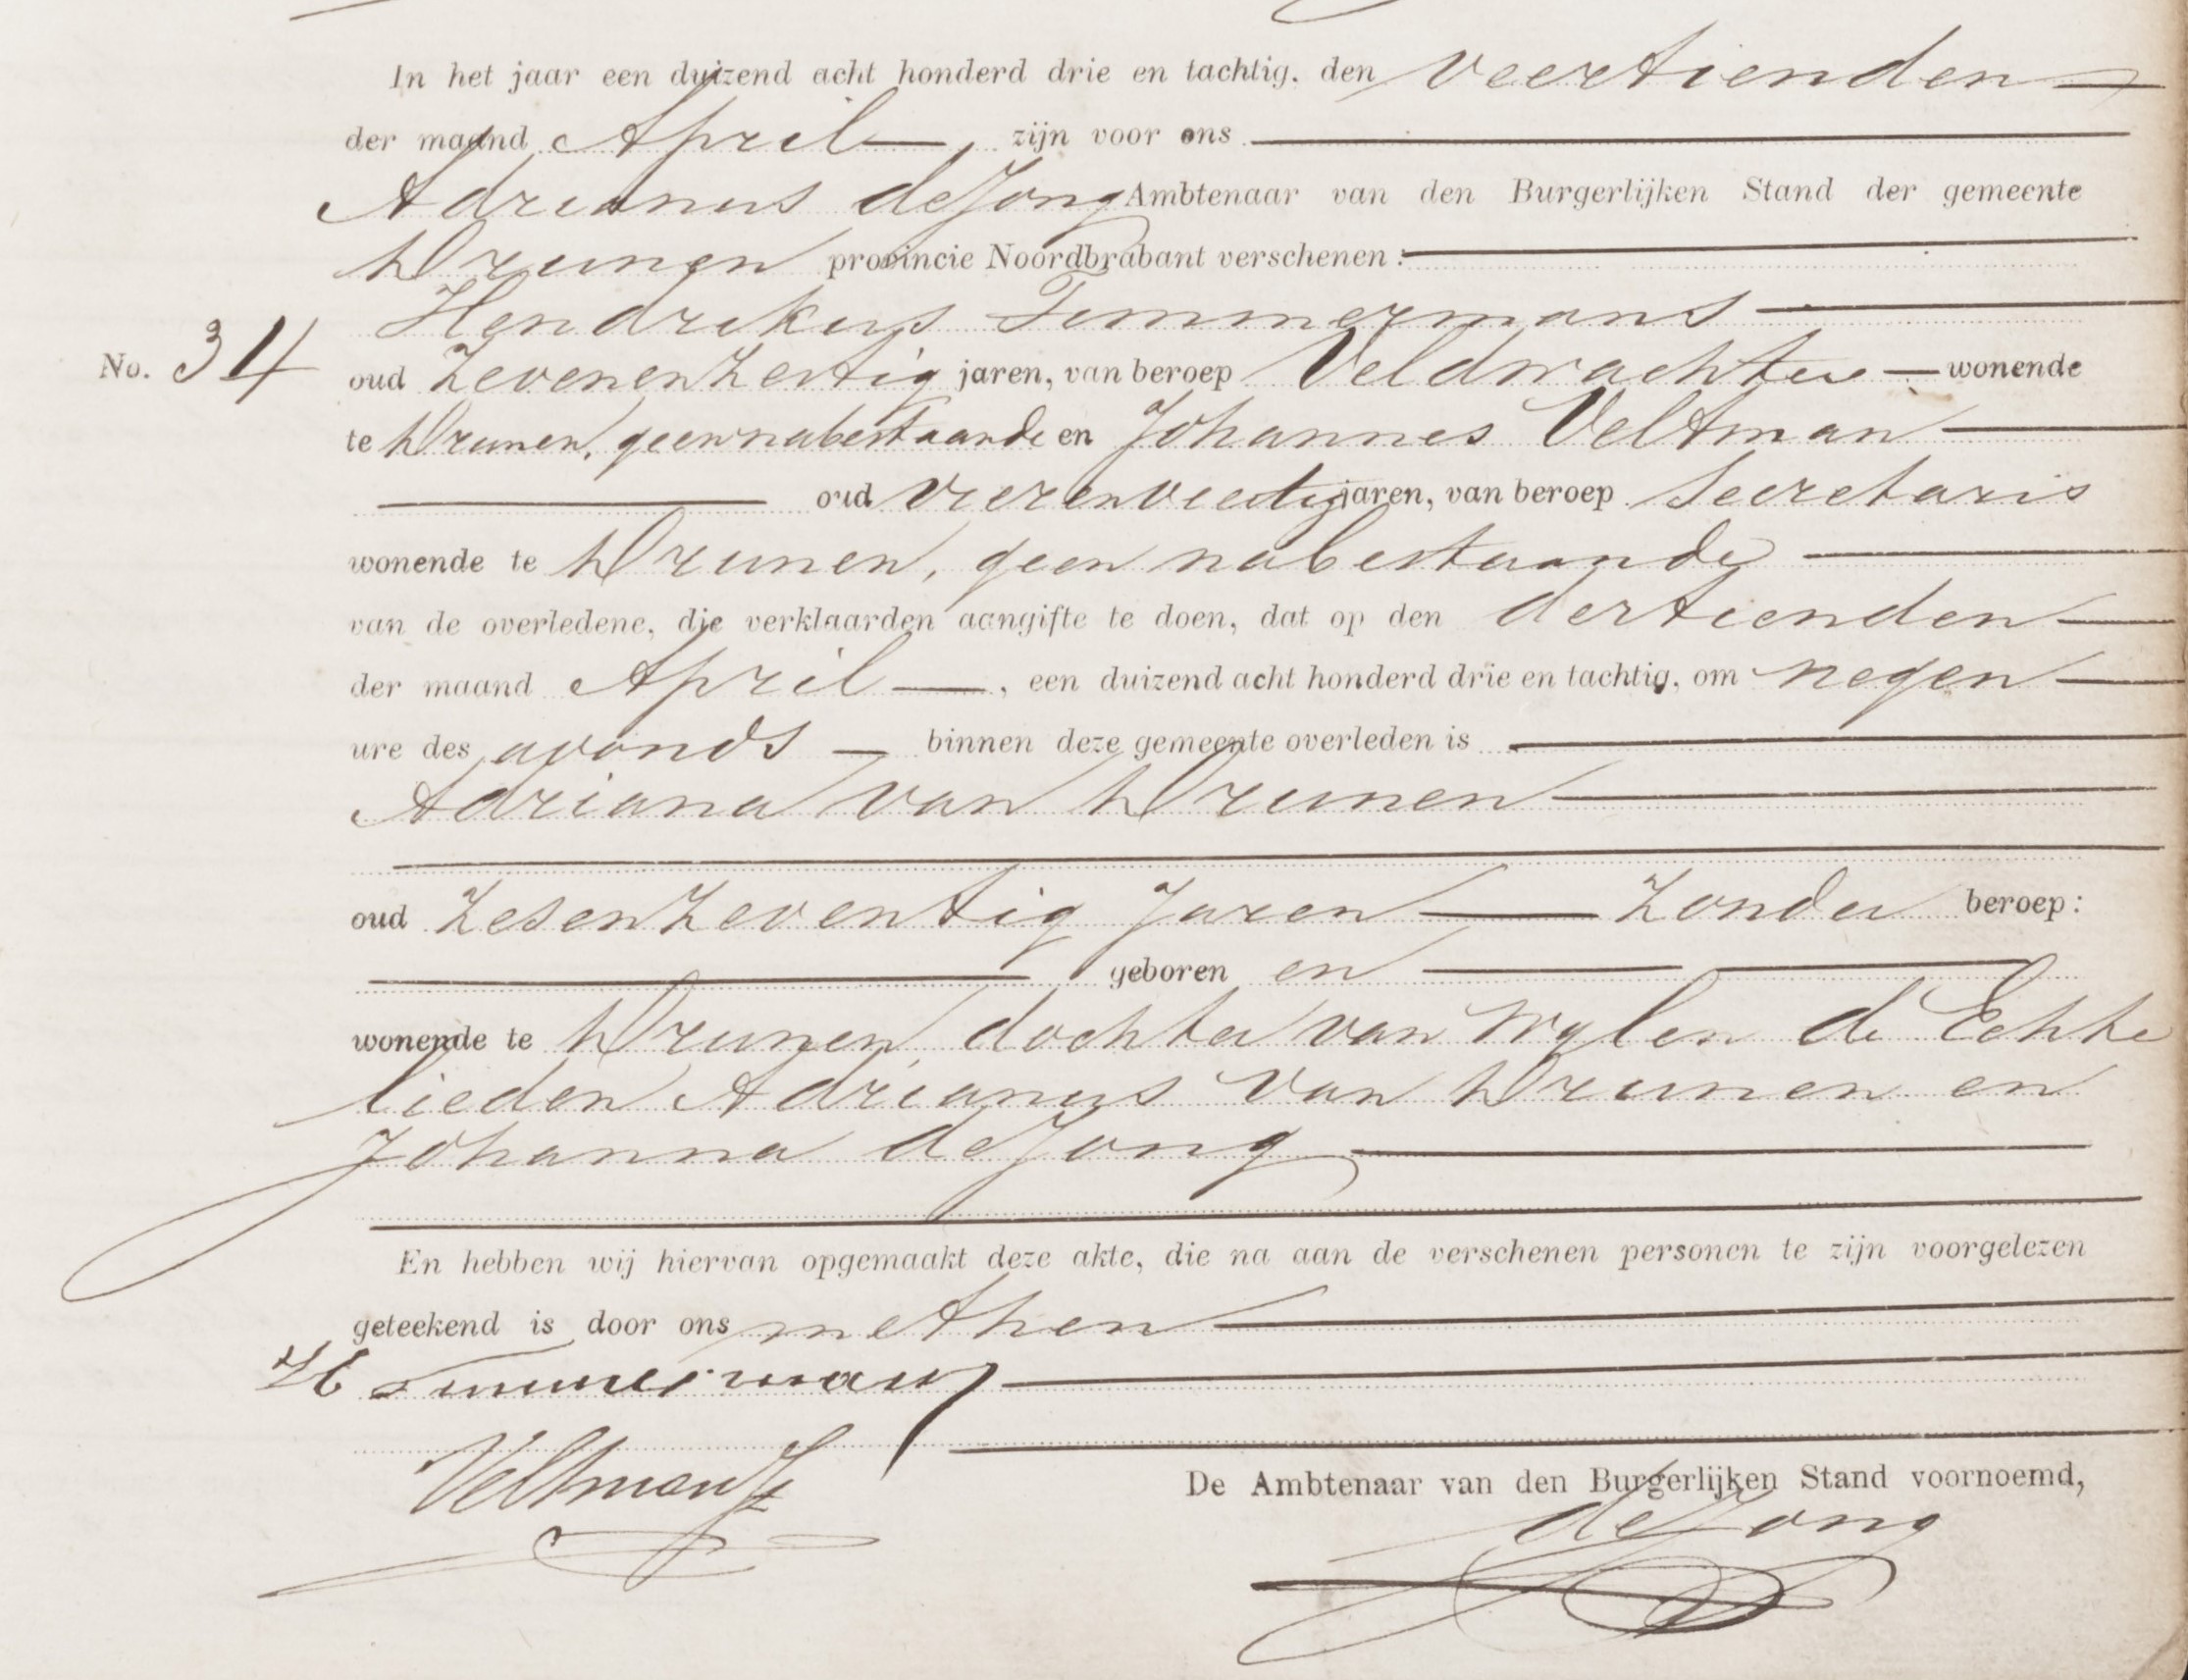 In het jaar een duizend acht honderd drie en tachtig, den veertienden
der maand April, zijn voor ons
Adrianus de Jong Ambtenaar van den Burgerlijken Stand der gemeente
Drunen provincie Noordbrabant verschenen:
Hendrikus Timmermans
No. 34
oud Zevenenzestig jaren, van beroep Veldwachter wonende
te Drunen, geen nabestaande en Johannes Veltman
oud vierenveertig jaren, van beroep Secretaris
wonende te Drunen, geen nabestaande
van de overledene, die verklaarden aangifte te doen, dat op den dertienden
der maand April, een duizend acht honderd drie en tachtig, om negen
ure des avonds binnen deze gemeente overleden is
Adriana van Drunen
oud Zesenzeventig Jaren Zonder beroep:
geboren en
wonende te Drunen, dochter van wylen de Echte
lieden Adrianus van Drunen en
Johanna de Jong
En hebben wij hiervan opgemaakt deze akte, die na aan de verschenen personen te zijn voorgelezen
geteekend is door ons met hen
H Timmermans
Veltman
De Ambtenaar van den Burgerlijken Stand voornoemd,
de Jong